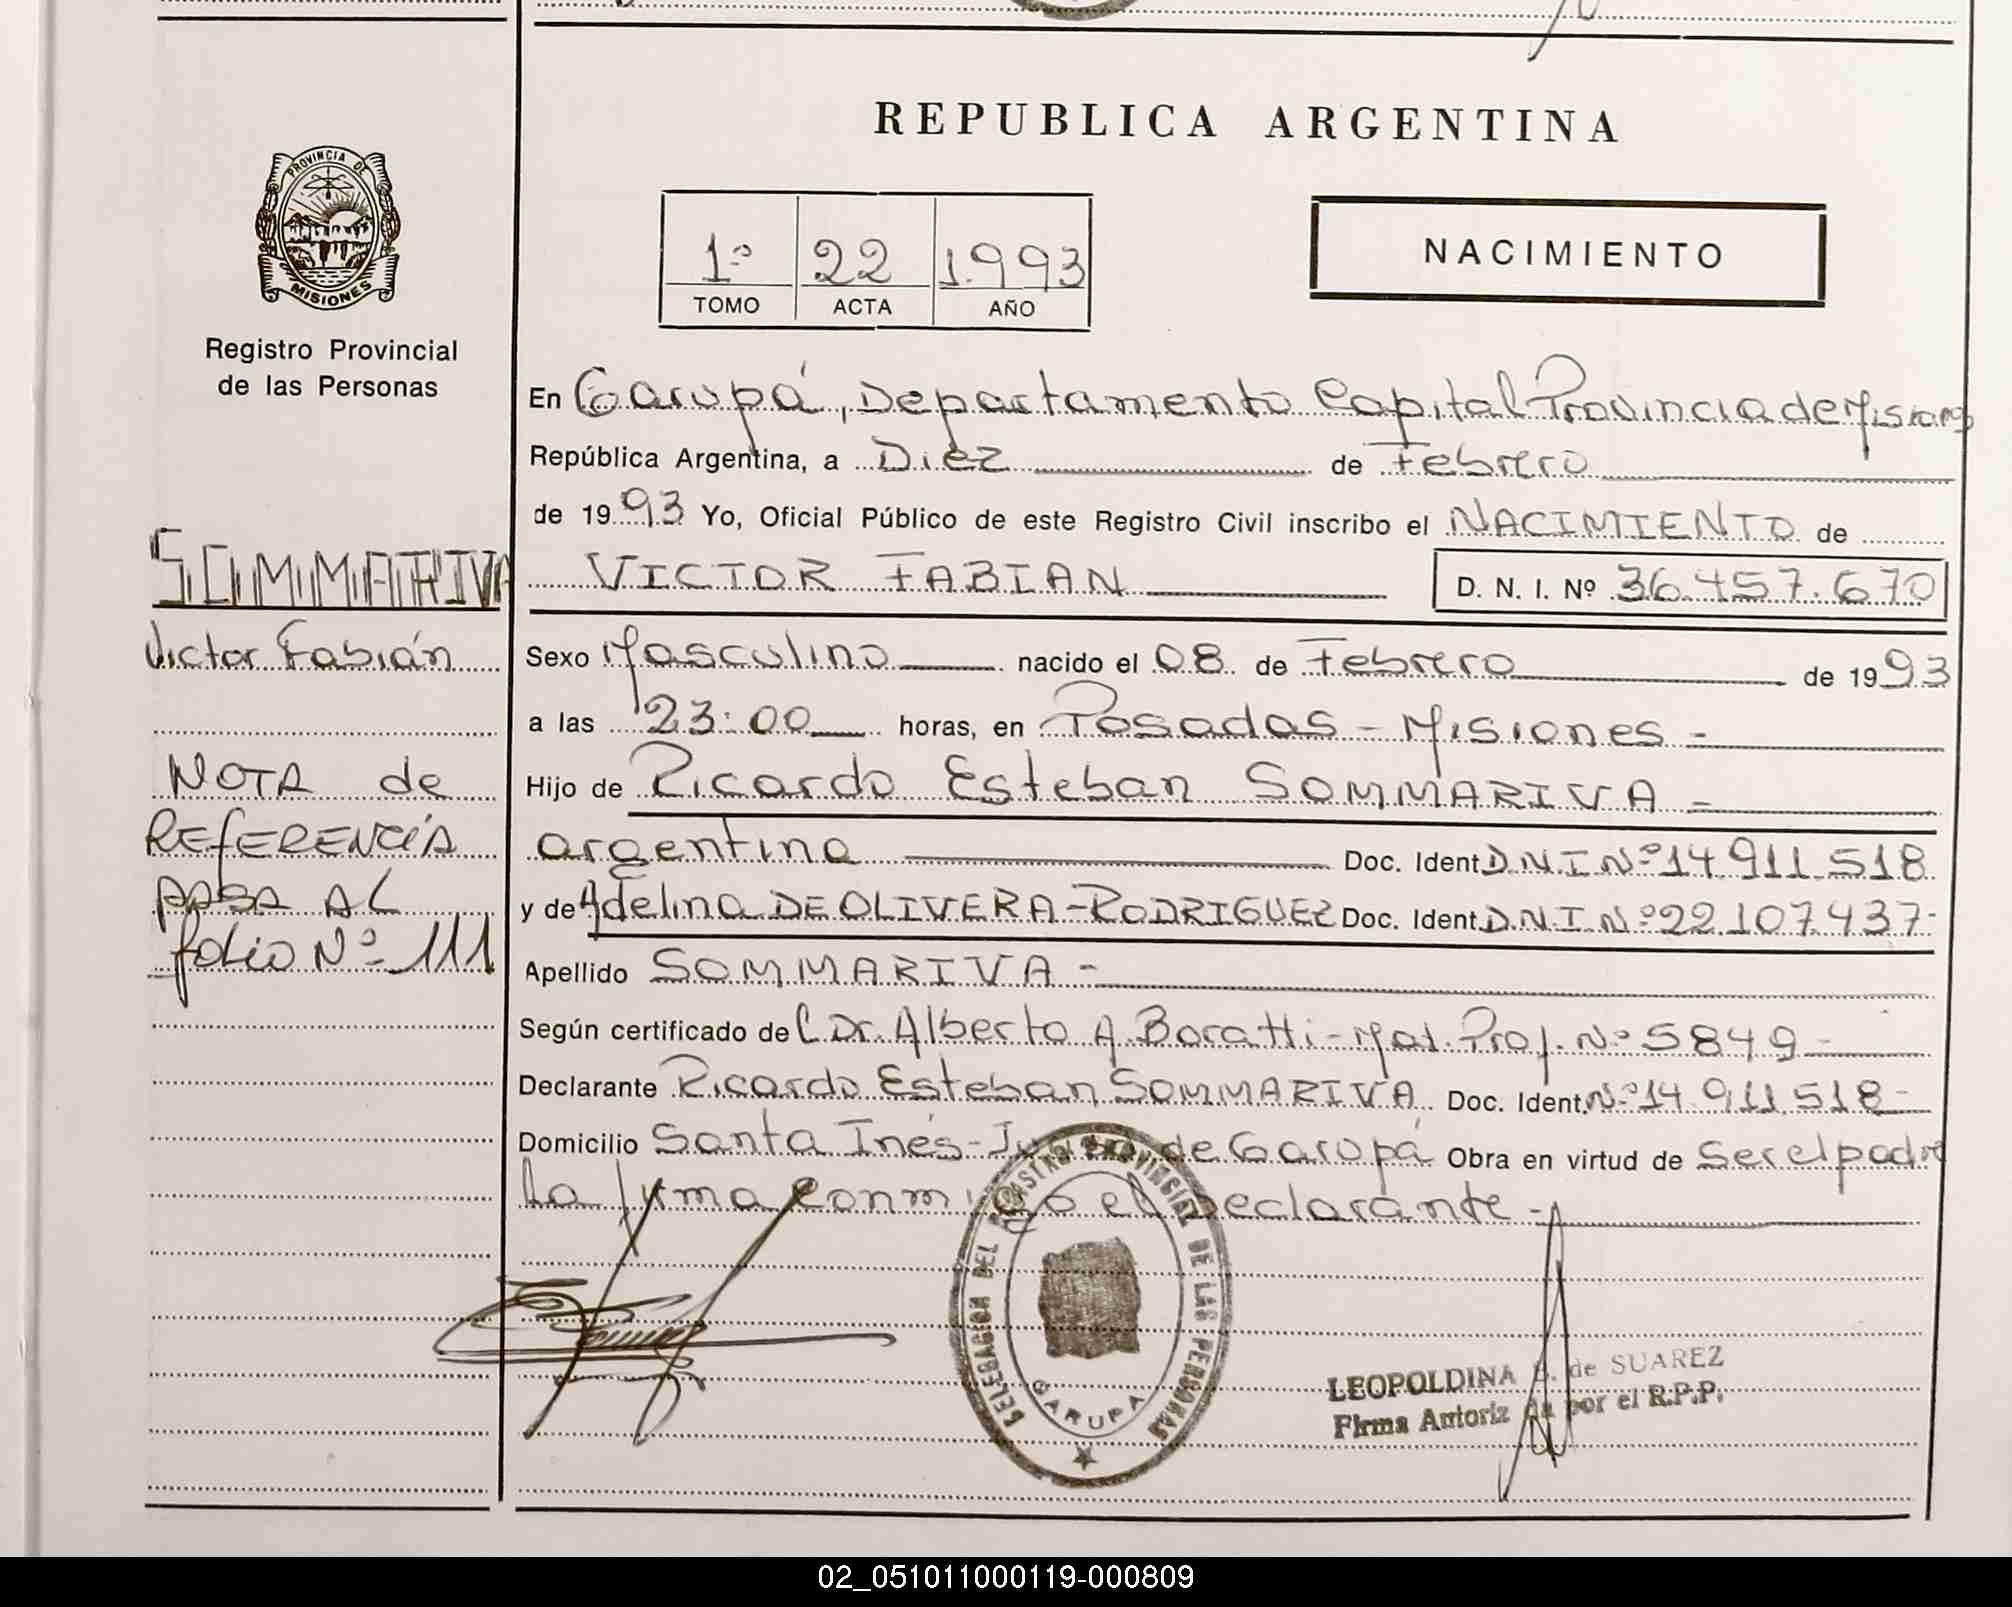 REPUBLICA ARGENTINA
PROVINCIA DE
MISIONES
Registro Provincial
de las Personas
1º 22 1.993
TOMO ACTA AÑO
NACIMIENTO
En Garupá, Departamento Capital Provincia de Misiones
República Argentina, a Diez de Febrero
de 1993 Yo, Oficial Público de este Registro Civil inscribo el NACIMIENTO de
VICTOR FABIAN D. N. I. Nº 36.457.670
Sexo Masculino nacido el 08 de Febrero de 1993
a las 23:00 horas, en Posadas - Misiones -
Hijo de Ricardo Esteban SOMMARIVA -
argentino Doc. Ident. D.N.I Nº 14.911.518
y de Adelina DE OLIVERA-RODRIGUEZ Doc. Ident. D.N.I. Nº 22.107.437-
Apellido SOMMARIVA -
Según certificado de l Dr. Alberto A. Boratti - Mat. Prof. Nº 5849 -
Declarante Ricardo Esteban SOMMARIVA Doc. Ident. Nº 14.911.518-
Domicilio Santa Inés - de Garupá Obra en virtud de Ser el padre
La firma conmigo el Declarante -
SOMMARIVA
Victor Fabián
NOTA de
REFERENCIA
PASA AL
folio Nº 111
DELEGACION DEL REGISTRO PROVINCIAL DE LAS PERSONAS
GARUPA
LEOPOLDINA de SUAREZ
Firma Autoriz da por el R.P.P.
02_051011000119-000809